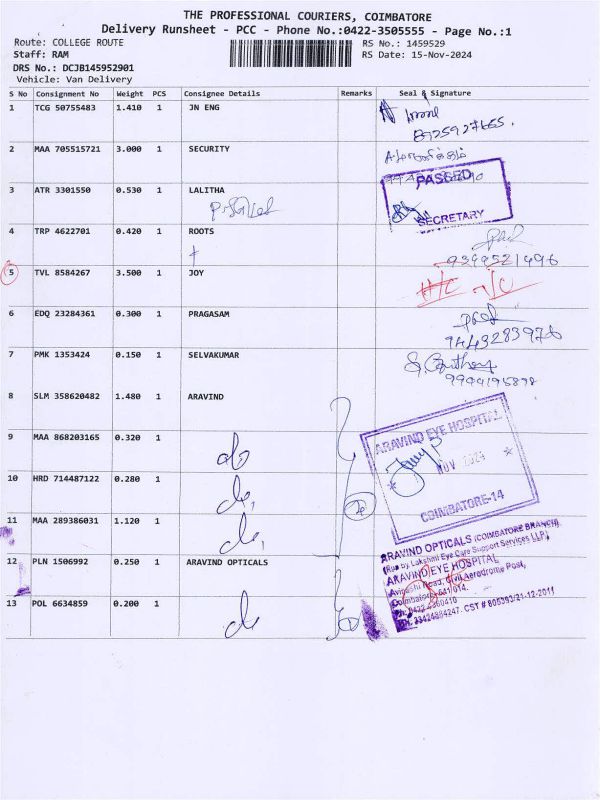 THE PROFESSIONAL COURIERS, COIMBATORE
Delivery Runsheet - PCC - Phone No.:0422-3505555 - Page No.:1
Route: COLLEGE ROUTE
RS No.: 1459529
Staff: RAM
RS Date: 15-Nov-2024
DRS No.: DCJB145952901
Vehicle: Van Delivery
S No Consignment No Weight PCS Consignee Details Remarks Seal & Signature
1 TCG 50755483 1.410 1 JN ENG
8925927655.
2 MAA 705515721 3.000 1 SECURITY
PASSED
3 ATR 3301550 0.530 1 LALITHA
SECRETARY
4 TRP 4622701 0.420 1 ROOTS
9399521496
5 TVL 8584267 3.500 1 JOY
6 EDQ 23284361 0.300 1 PRAGASAM
9443283976
7 PMK 1353424 0.150 1 SELVAKUMAR
9994195898
8 SLM 358620482 1.480 1 ARAVIND
ARAVIND EYE HOSPITAL
9 MAA 868203165 0.320 1
NOV 2024
10 HRD 714487122 0.280 1
COIMBATORE-14
11 MAA 289386031 1.120 1
ARAVIND OPTICALS (COIMBATORE BRANCH)
(Run by Lakshmi Eye Care Support Services LLP)
12 PLN 1506992 0.250 1 ARAVIND OPTICALS
ARAVIND EYE HOSPITAL
Avinashi Road, Civil Aerodrome Post,
Coimbatore - 641 014.
13 POL 6634859 0.200 1
Ph: 0422-4360410
CST # 805393/21-12-2011